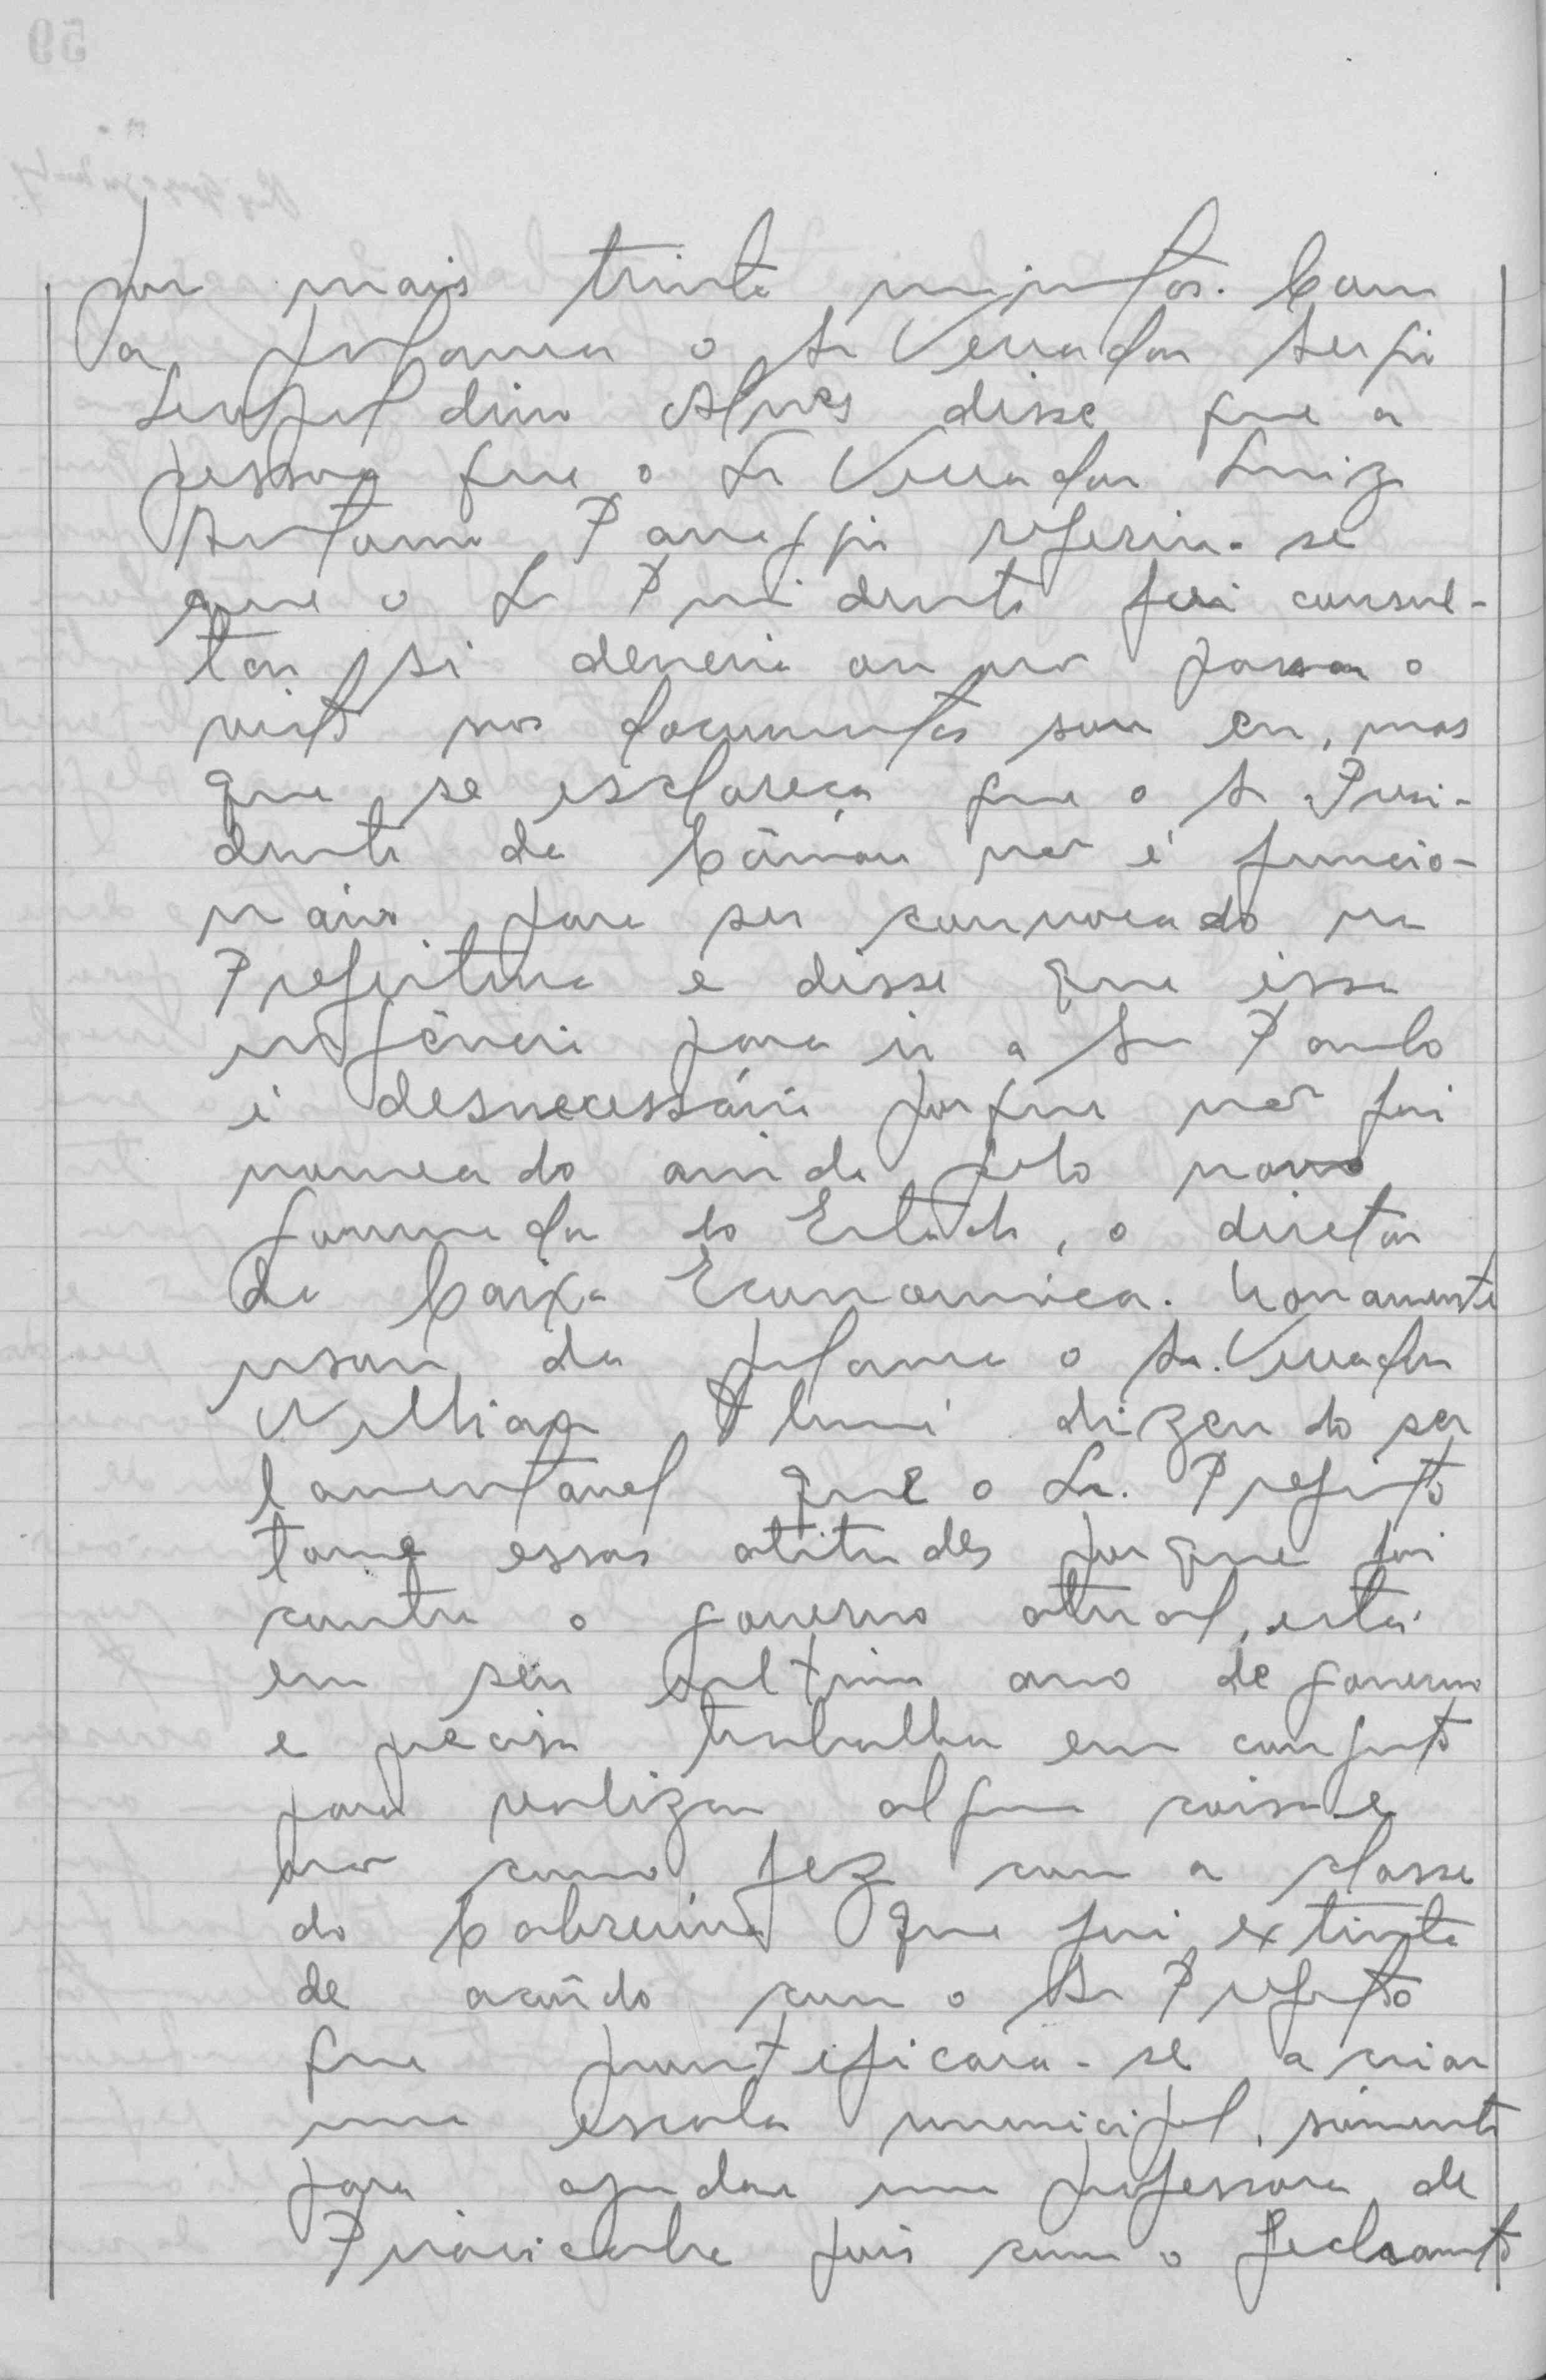 por mais trinta minutos. Com
a palavra o Sr Vereador Sergio
Leopoldino Alves disse que a
pessoa que o Sr Vereador Luiz
Antonio Panaggio referiu-se
que o Sr Presidente foi consul-
tar si deveria ou não passar o
visto nos documentos sou eu, mas
que se esclareça que o Sr Presi-
dente da Câmara não é funcio-
nário para ser convocado na
Prefeitura e disse que essa
urgência para ir a São Paulo
é desnecessária porque não foi
nomeado ainda pelo novo
governador do Estado, o diretor
da Caixa Economica. Novamente
usou da palavra o Sr. Vereador
dizendo ser
lamentavel que o Sr. Prefeito
tome essas atitudes porque foi
contra o governo atual, está
em seu ultimo ano de governo
e precisa trabalhar em conjunto
para realizar alguma coisa e
não como fez com a classe
do Cabreúva que foi extinta
de acôrdo com o Sr Prefeito
que prontificara-se a criar
uma escola municipal, sómente
para ajudar uma professora de
Piracicaba pois com o fechamento